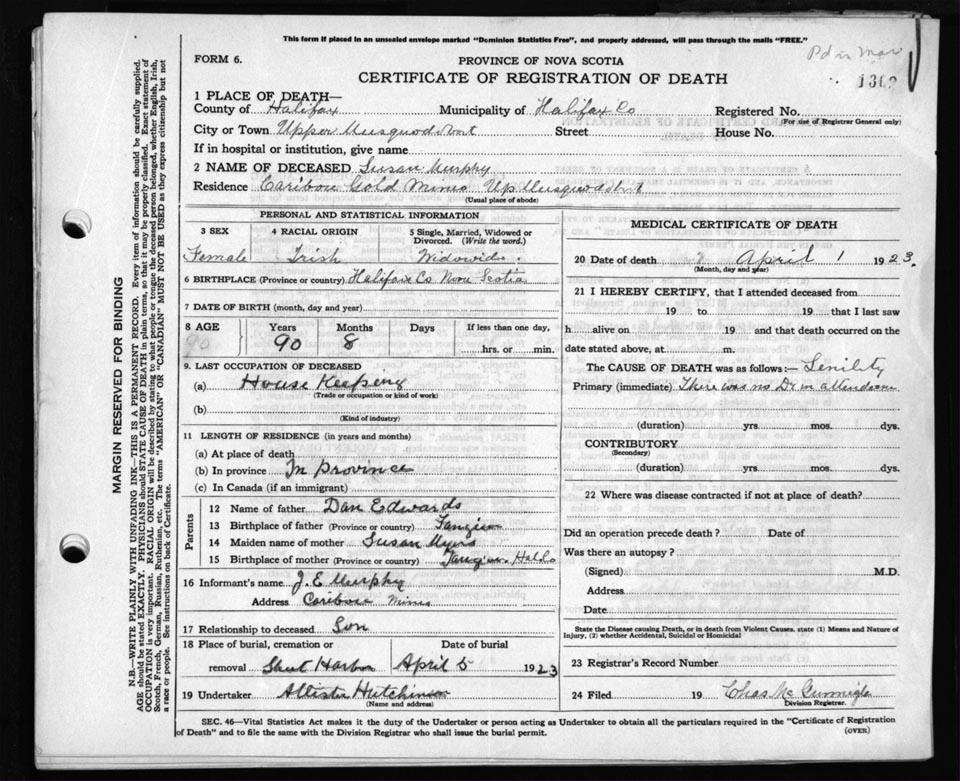 This form if placed in an unsealed envelope marked "Dominion Statistics Free", and properly addressed, will pass through the mails "FREE."
FORM 6.
PROVINCE OF NOVA SCOTIA
CERTIFICATE OF REGISTRATION OF DEATH
1 PLACE OF DEATH—
County of Halifax Municipality of Halifax Co Registered No.
(For use of Registrar General only)
City or Town Upper Musquodoboit Street House No.
If in hospital or institution, give name
2 NAME OF DECEASED Susan Murphy
Residence Caribou Gold Mines Up Musquodoboit
(Usual place of abode)
PERSONAL AND STATISTICAL INFORMATION
3 SEX 4 RACIAL ORIGIN 5 Single, Married, Widowed or Divorced. (Write the word.)
Female Irish Widowid
6 BIRTHPLACE (Province or country) Halifax Co Nova Scotia
7 DATE OF BIRTH (month, day and year)
8 AGE Years Months Days If less than one day,
90 90 8 hrs. or min.
9. LAST OCCUPATION OF DECEASED
(a) House Keeping
(Trade or occupation or kind of work)
(b)
(Kind of industry)
11 LENGTH OF RESIDENCE (in years and months)
(a) At place of death
(b) In province In province
(c) In Canada (if an immigrant)
Parents
12 Name of father Dan Edwards
13 Birthplace of father (Province or country) Tangier
14 Maiden name of mother Susan Myers
15 Birthplace of mother (Province or country) Tangier
16 Informant's name J E Murphy
Address Caribou Mines
17 Relationship to deceased Son
18 Place of burial, cremation or removal Date of burial
Sheet Harbor April 5 1923
19 Undertaker Allister Hutchinson
(Name and address)
MEDICAL CERTIFICATE OF DEATH
20 Date of death April 1 1923.
(Month, day and year)
21 I HEREBY CERTIFY, that I attended deceased from
19 to 19 that I last saw
h alive on 19 and that death occurred on the
date stated above, at m.
The CAUSE OF DEATH was as follows:— Senility
Primary (immediate) There was no Dr in attendance
(duration) yrs. mos. dys.
CONTRIBUTORY
(Secondary)
(duration) yrs. mos. dys.
22 Where was disease contracted if not at place of death?
Did an operation precede death? Date of
Was there an autopsy?
(Signed) M.D.
Address
Date
State the Disease causing Death, or in death from Violent Causes, state (1) Means and Nature of
Injury, (2) whether Accidental, Suicidal or Homicidal
23 Registrar's Record Number
24 Filed 19 Chas
Division Registrar.
SEC. 46—Vital Statistics Act makes it the duty of the Undertaker or person acting as Undertaker to obtain all the particulars required in the "Certificate of Registration
of Death" and to file the same with the Division Registrar who shall issue the burial permit.
(OVER)
MARGIN RESERVED FOR BINDING
N.B.—WRITE PLAINLY WITH UNFADING INK—THIS IS A PERMANENT RECORD. Every item of information should be carefully supplied.
AGE should be stated EXACTLY. PHYSICIANS should STATE CAUSE OF DEATH in plain terms, so that it may be properly classified. Exact statement of
OCCUPATION is very important. RACIAL ORIGIN will be described by stating to what people or tongue the deceased person belonged, whether English, Irish,
Scotch, French, German, Russian, Ruthenian, etc. The terms "AMERICAN" OR "CANADIAN" MUST NOT BE USED as they express citizenship but not
a race or people. See instructions on back of Certificate.